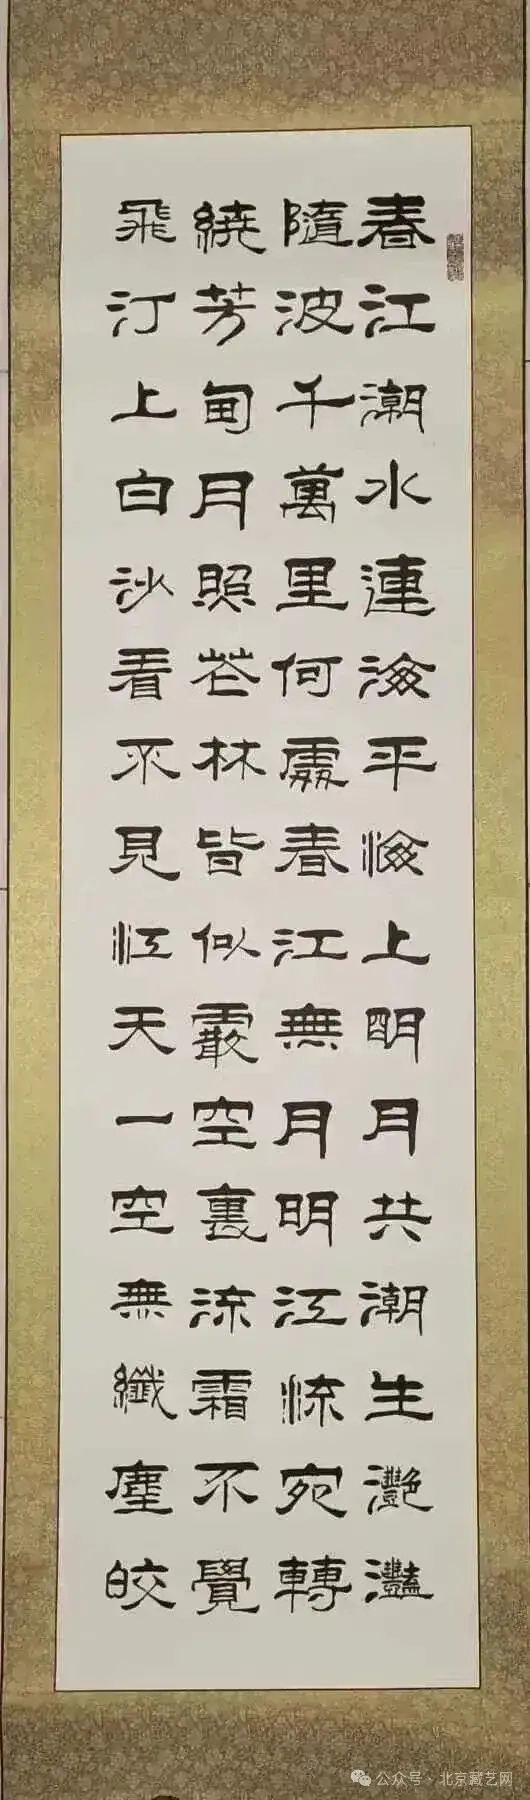 春江潮水連海平海上明月共潮生灧灩
隨波千萬里何處春江無月明江流宛轉
繞芳甸月照花林皆似霰空裏流霜不覺
飛汀上白沙看不見江天一空無纖塵皎
公众号·北京藏艺网